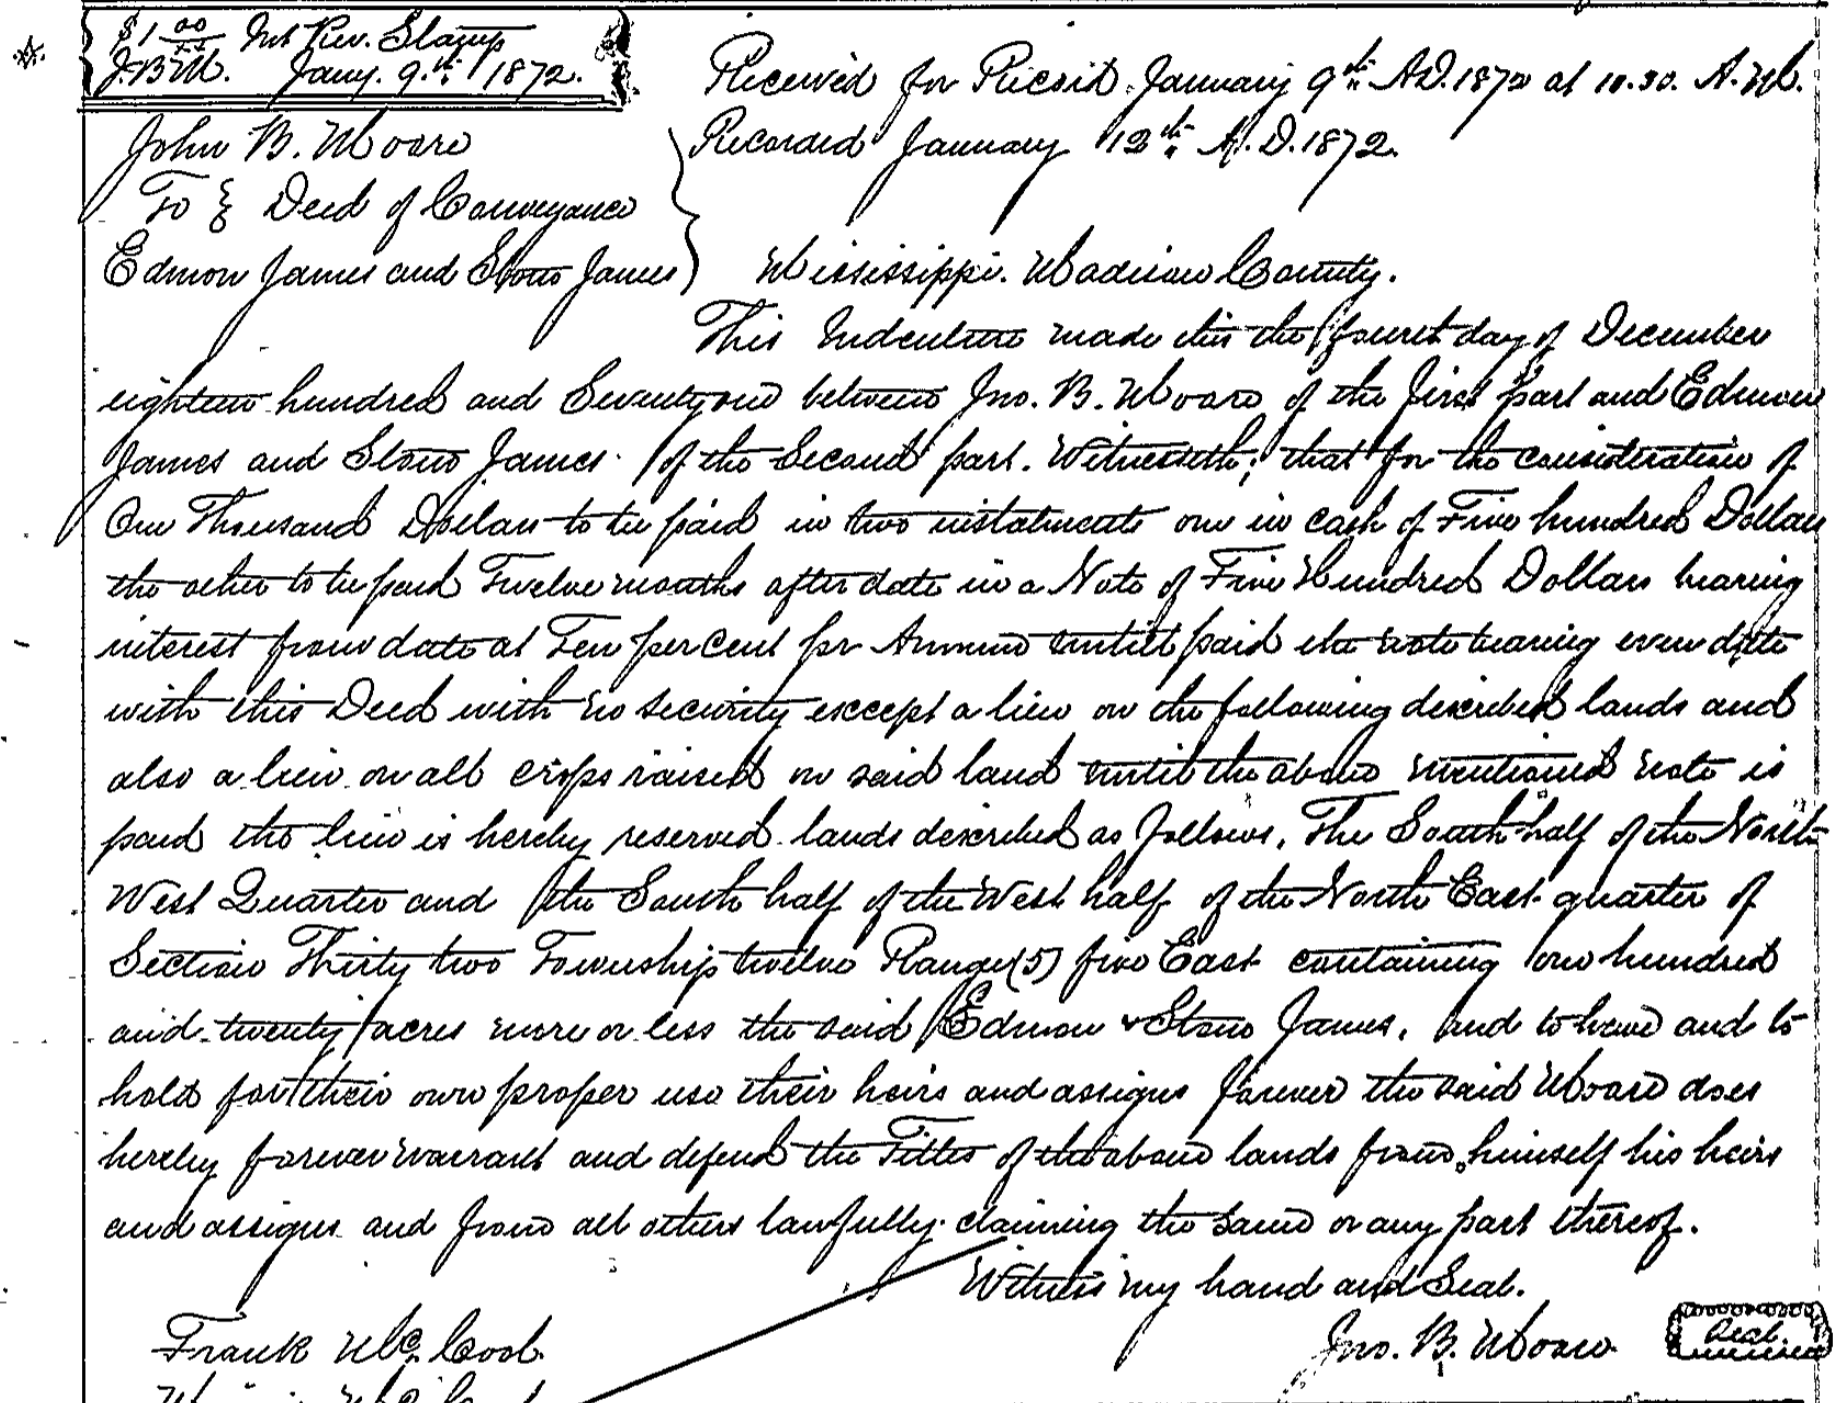 $1 00/xx Int Rev. Stamp
J.B.M. Jany. 9.th 1872.
Received for Record January 9th A.D. 1872 at 10.30. A.M.
Recorded January 12th A.D. 1872.
John B. Moore
To } Deed of Conveyance
Edmon James and Stono James
Mississippi. Madison County.
This Indenture made this the fourth day of December
eighteen hundred and Seventy one between Jno. B. Moore of the first part and Edmon
James and Stono James of the Second part. Witnesseth; that for the consideration of
One Thousand Dollars to be paid in two instalments one in cash of Five hundred Dollars
the other to be paid Twelve months after date in a Note of Five Hundred Dollars bearing
interest from date at Ten per cent pr Annum untill paid the note bearing even date
with this Deed with no security except a lien on the following described lands and
also a lien on all crops raised on said land until the above mentioned note is
paid the lien is hereby reserved lands described as follows, The South half of the North
West Quarter and the South half of the West half of the North East quarter of
Section Thirty two Township twelve Range (5) five East containing one hundred
and twenty acres more or less the said Edmon & Stono James, and to have and to
hold for their own proper use their heirs and assigns forever the said Moore does
hereby forever warrant and defend the Titles of the above lands from himself his heirs
and assigns and from all others lawfully claiming the same or any part thereof.
Witness my hand and Seal.
Frank Mc. Cool
Jno. B. Moore Seal.